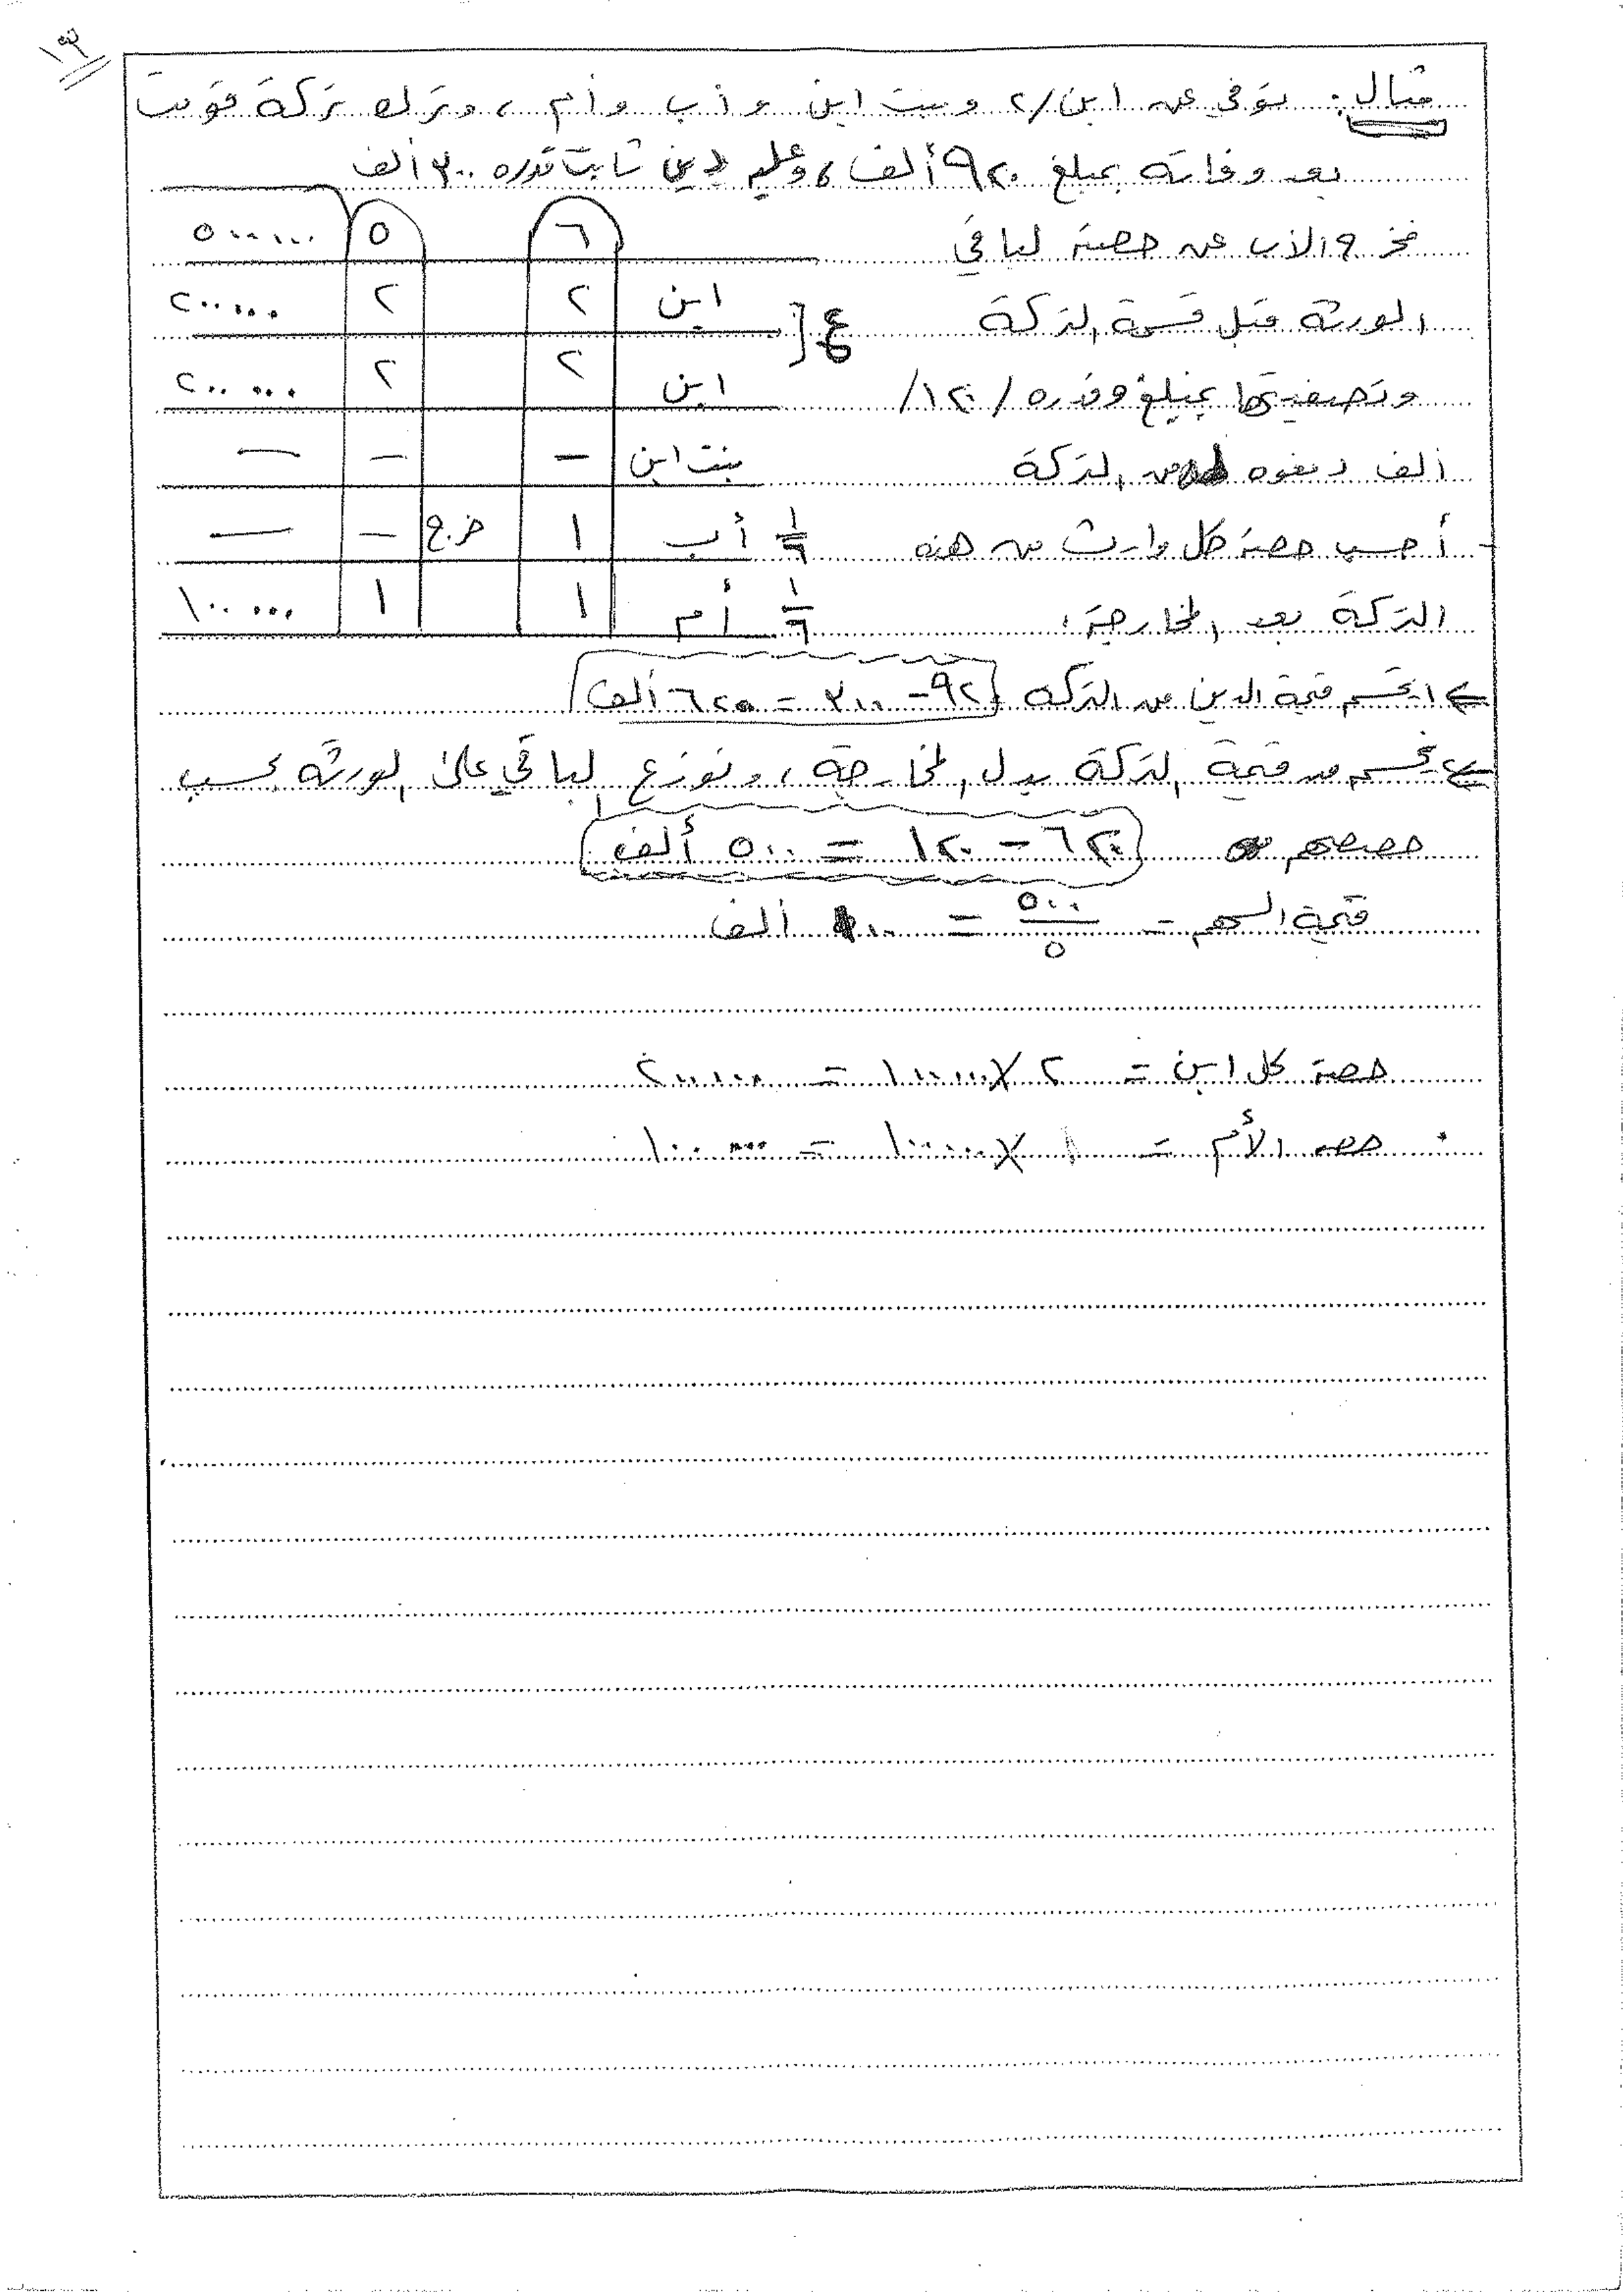 ١٩
مثال: توفي عن ابن /٢ وبنت ابن وأب وأم ، وترك تركة قومت
بعد وفاته بمبلغ ٩٢٠ ألف ، وعليه دين ثابت قدره ٣٠٠ ألف
فخرج الأب عن حصته لباقي
الورثة قبل قسمة التركة
وتصفيتها بمبلغ وقدره /١٢٠/
ألف دفعوه من التركة
أحسب حصة كل وارث من هذه
التركة بعد المخارجة:
٦ ٥ ٥٠٠٠٠٠
ع ابن ٢ ٢ ٢٠٠٠٠٠
ابن ٢ ٢ ٢٠٠٠٠٠
بنت ابن — — —
١/٦ أب ١ خرج — —
١/٦ أم ١ ١ ١٠٠٠٠٠
قيمة الدين من التركة ٩٢٠ - ٣٠٠ = ٦٢٠ ألف
من قيمة التركة بدل المخارجة ، ونوزع الباقي على الورثة بحسب
حصصهم ٦٢٠ - ١٢٠ = ٥٠٠ ألف
قيمة السهم = ٥٠٠/٥ = ١٠٠ ألف
حصة كل ابن = ٢ × ١٠٠٠٠٠ = ٢٠٠٠٠٠
حصة الأم = ١ × ١٠٠٠٠٠ = ١٠٠٠٠٠